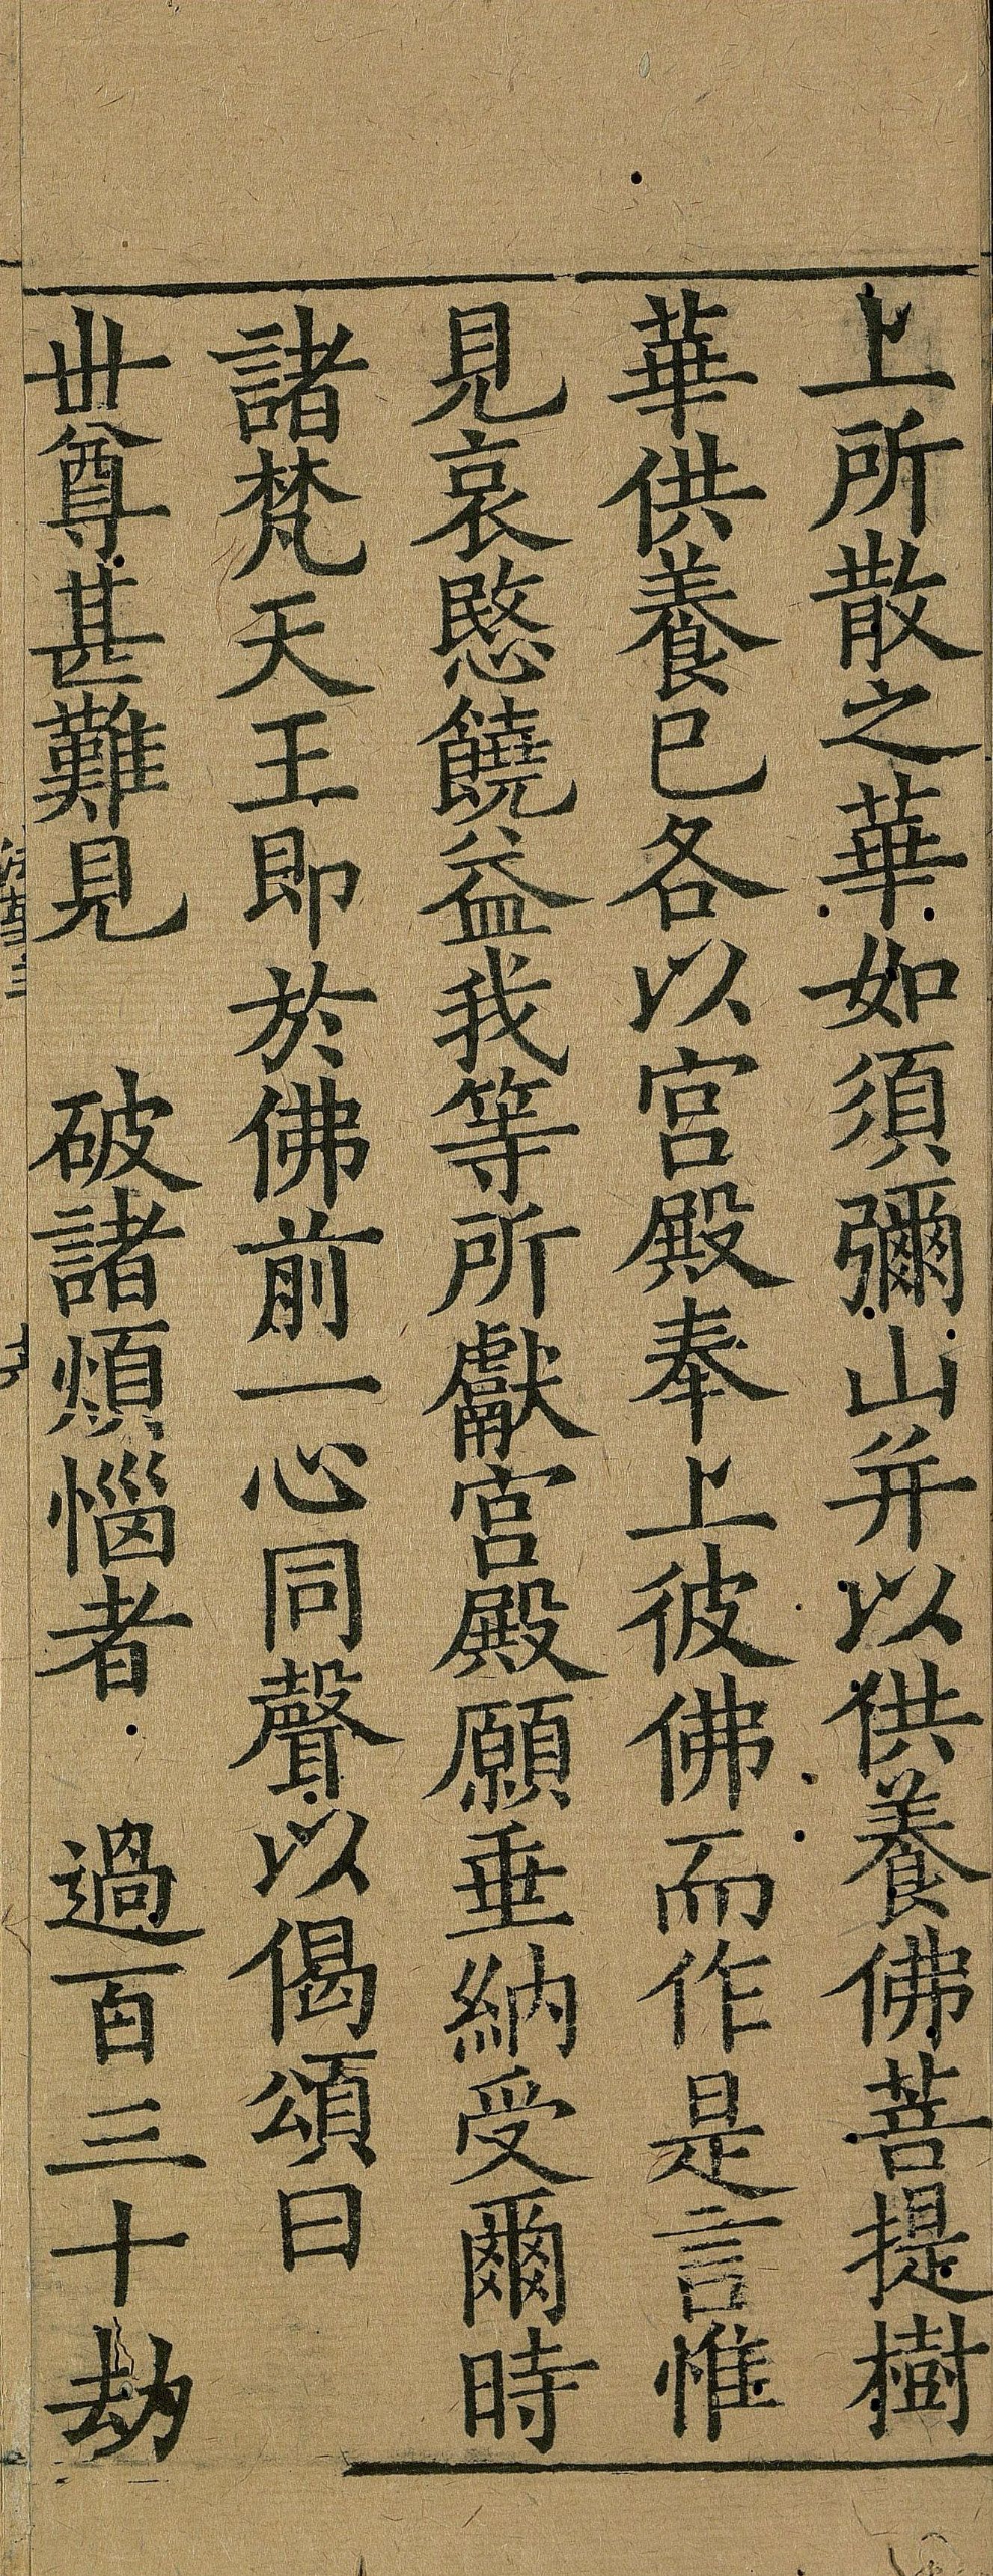 上所散之華如須彌山并以供養佛菩提樹
華供養已各以宮殿奉上彼佛而作是言惟
見哀愍饒益我等所獻宮殿願垂納受爾時
諸梵天王即於佛前一心同聲以偈頌曰
丗尊甚難見　破諸煩惱者　過百三十劫